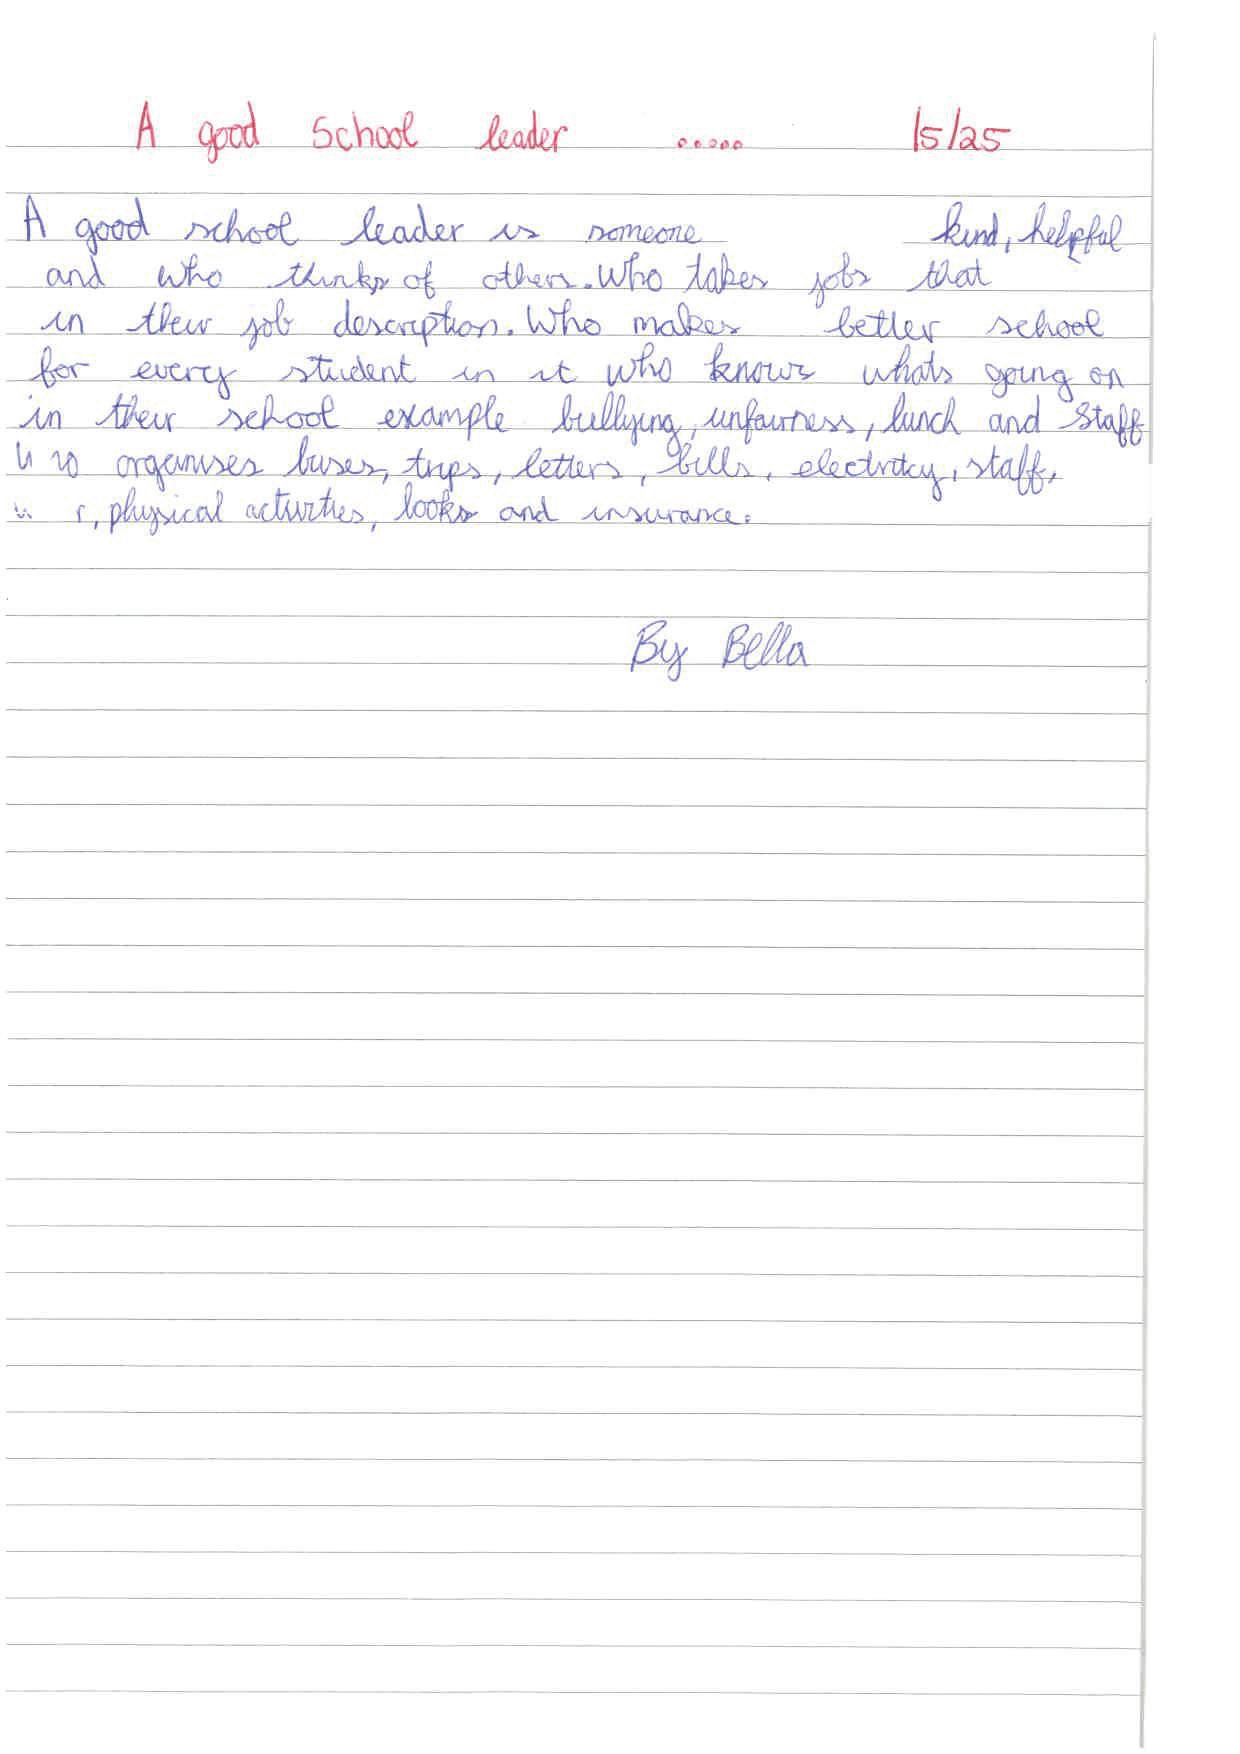 A good school leader ..... /5/25
A good school leader is someone kind, helpful
and who thinks of others. Who takes jobs that
in their job description. Who makes better school
for every student in it who knows whats going on
in their school example bullying, unfairness, lunch and staff
organises buses, trips, letters, bills, electricity, staff,
physical activities, looks and insurance.
By Bella